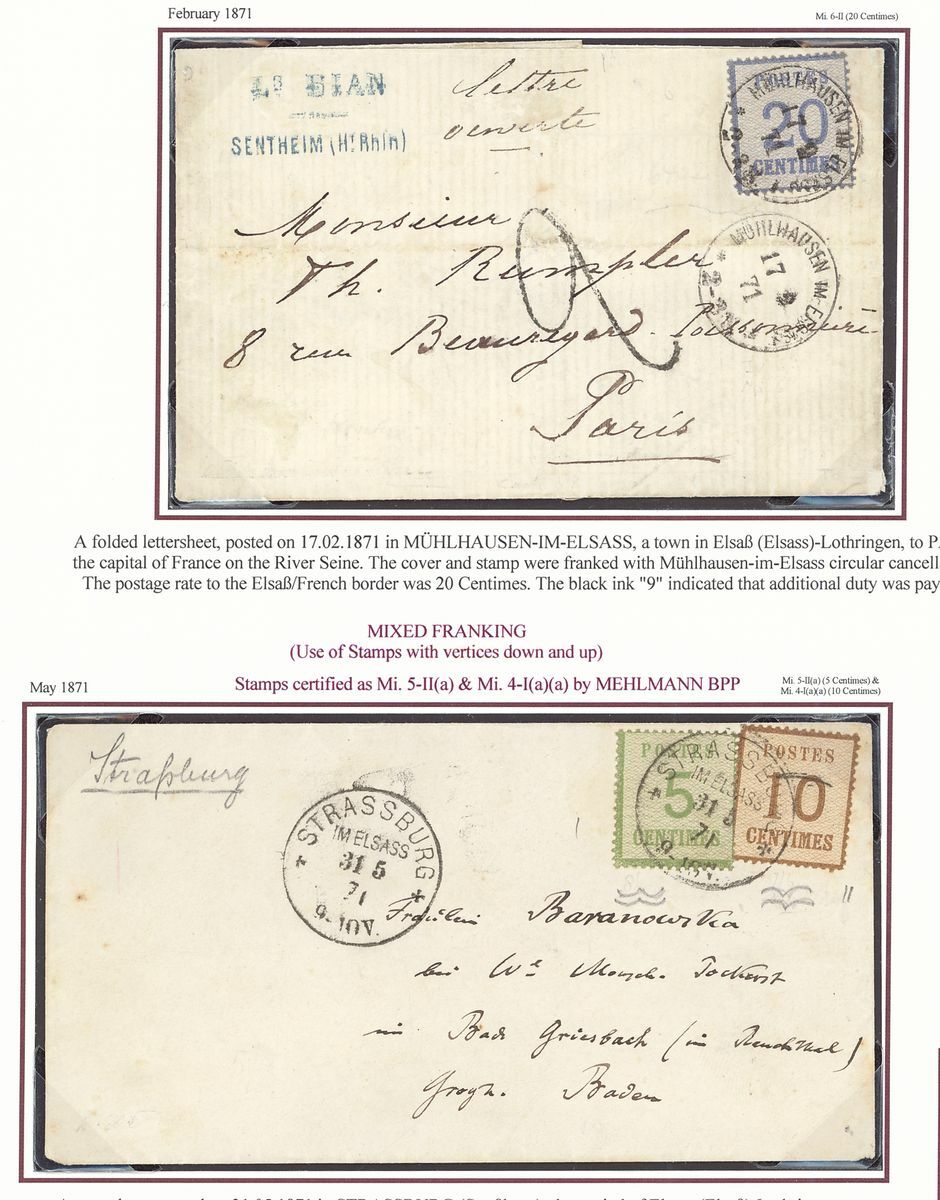 February 1871
Mi. 6-II (20 Centimes)
Ls BIAN
SENTHEIM (Ht Rhin)
lettre
ouverte
20
CENTIMES
MÜHLHAUSEN IM EL
17
71
MÜHLHAUSEN IM-ELSASS
17 2
71
Monsieur
Th. Rumpler
8 rue Beauregard-Poissonnière
Paris
A folded lettersheet, posted on 17.02.1871 in MÜHLHAUSEN-IM-ELSASS, a town in Elsaß (Elsass)-Lothringen, to P
the capital of France on the River Seine. The cover and stamp were franked with Mühlhausen-im-Elsass circular cancell
The postage rate to the Elsaß/French border was 20 Centimes. The black ink "9" indicated that additional duty was pay
MIXED FRANKING
(Use of Stamps with vertices down and up)
May 1871
Stamps certified as Mi. 5-II(a) & Mi. 4-I(a)(a) by MEHLMANN BPP
Mi. 5-II(a) (5 Centimes) &
Mi. 4-I(a)(a) (10 Centimes)
Straßburg
STRASSBURG
IM ELSASS
31 5
71
9-10V.
POSTES
5
CENTIMES
POSTES
10
CENTIMES
STRASSBURG
IM ELSASS
31 5
71
9-10V.
Fräulein Baranowska
bei We
im Bad Griesbach (im Renchthal)
Grozh. Baden